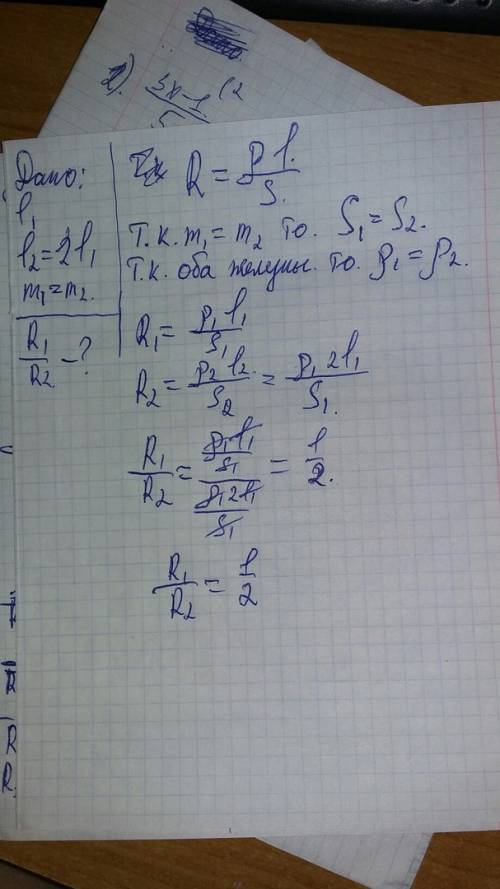 2). 3x-1 (2
5
Дано:
l₁
l₂=2l₁
m₁=m₂.
R₁/R₂ - ?
R = ρ l / S.
Т.к. m₁ = m₂ то. S₁ = S₂.
Т.к. оба железны. то. ρ₁ = ρ₂.
R₁ = ρ₁ l₁ / S₁
R₂ = ρ₂ l₂ / S₂ = ρ₁ 2l₁ / S₁.
R₁/R₂ = (ρ₁ l₁ / S₁) / (ρ₁ 2l₁ / S₁) = 1/2.
R₁/R₂ = 1/2
R
R
R.